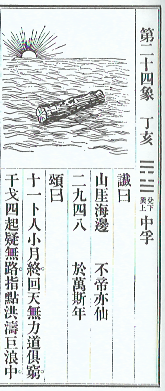 第二十四象 丁亥 ䷼ 兌下巽上 中孚
讖曰
山厓海邊 不帝亦仙
二九四八 於萬斯年
頌曰
十一卜人小月終回天無力道俱窮
干戈四起疑無路指點洪濤巨浪中